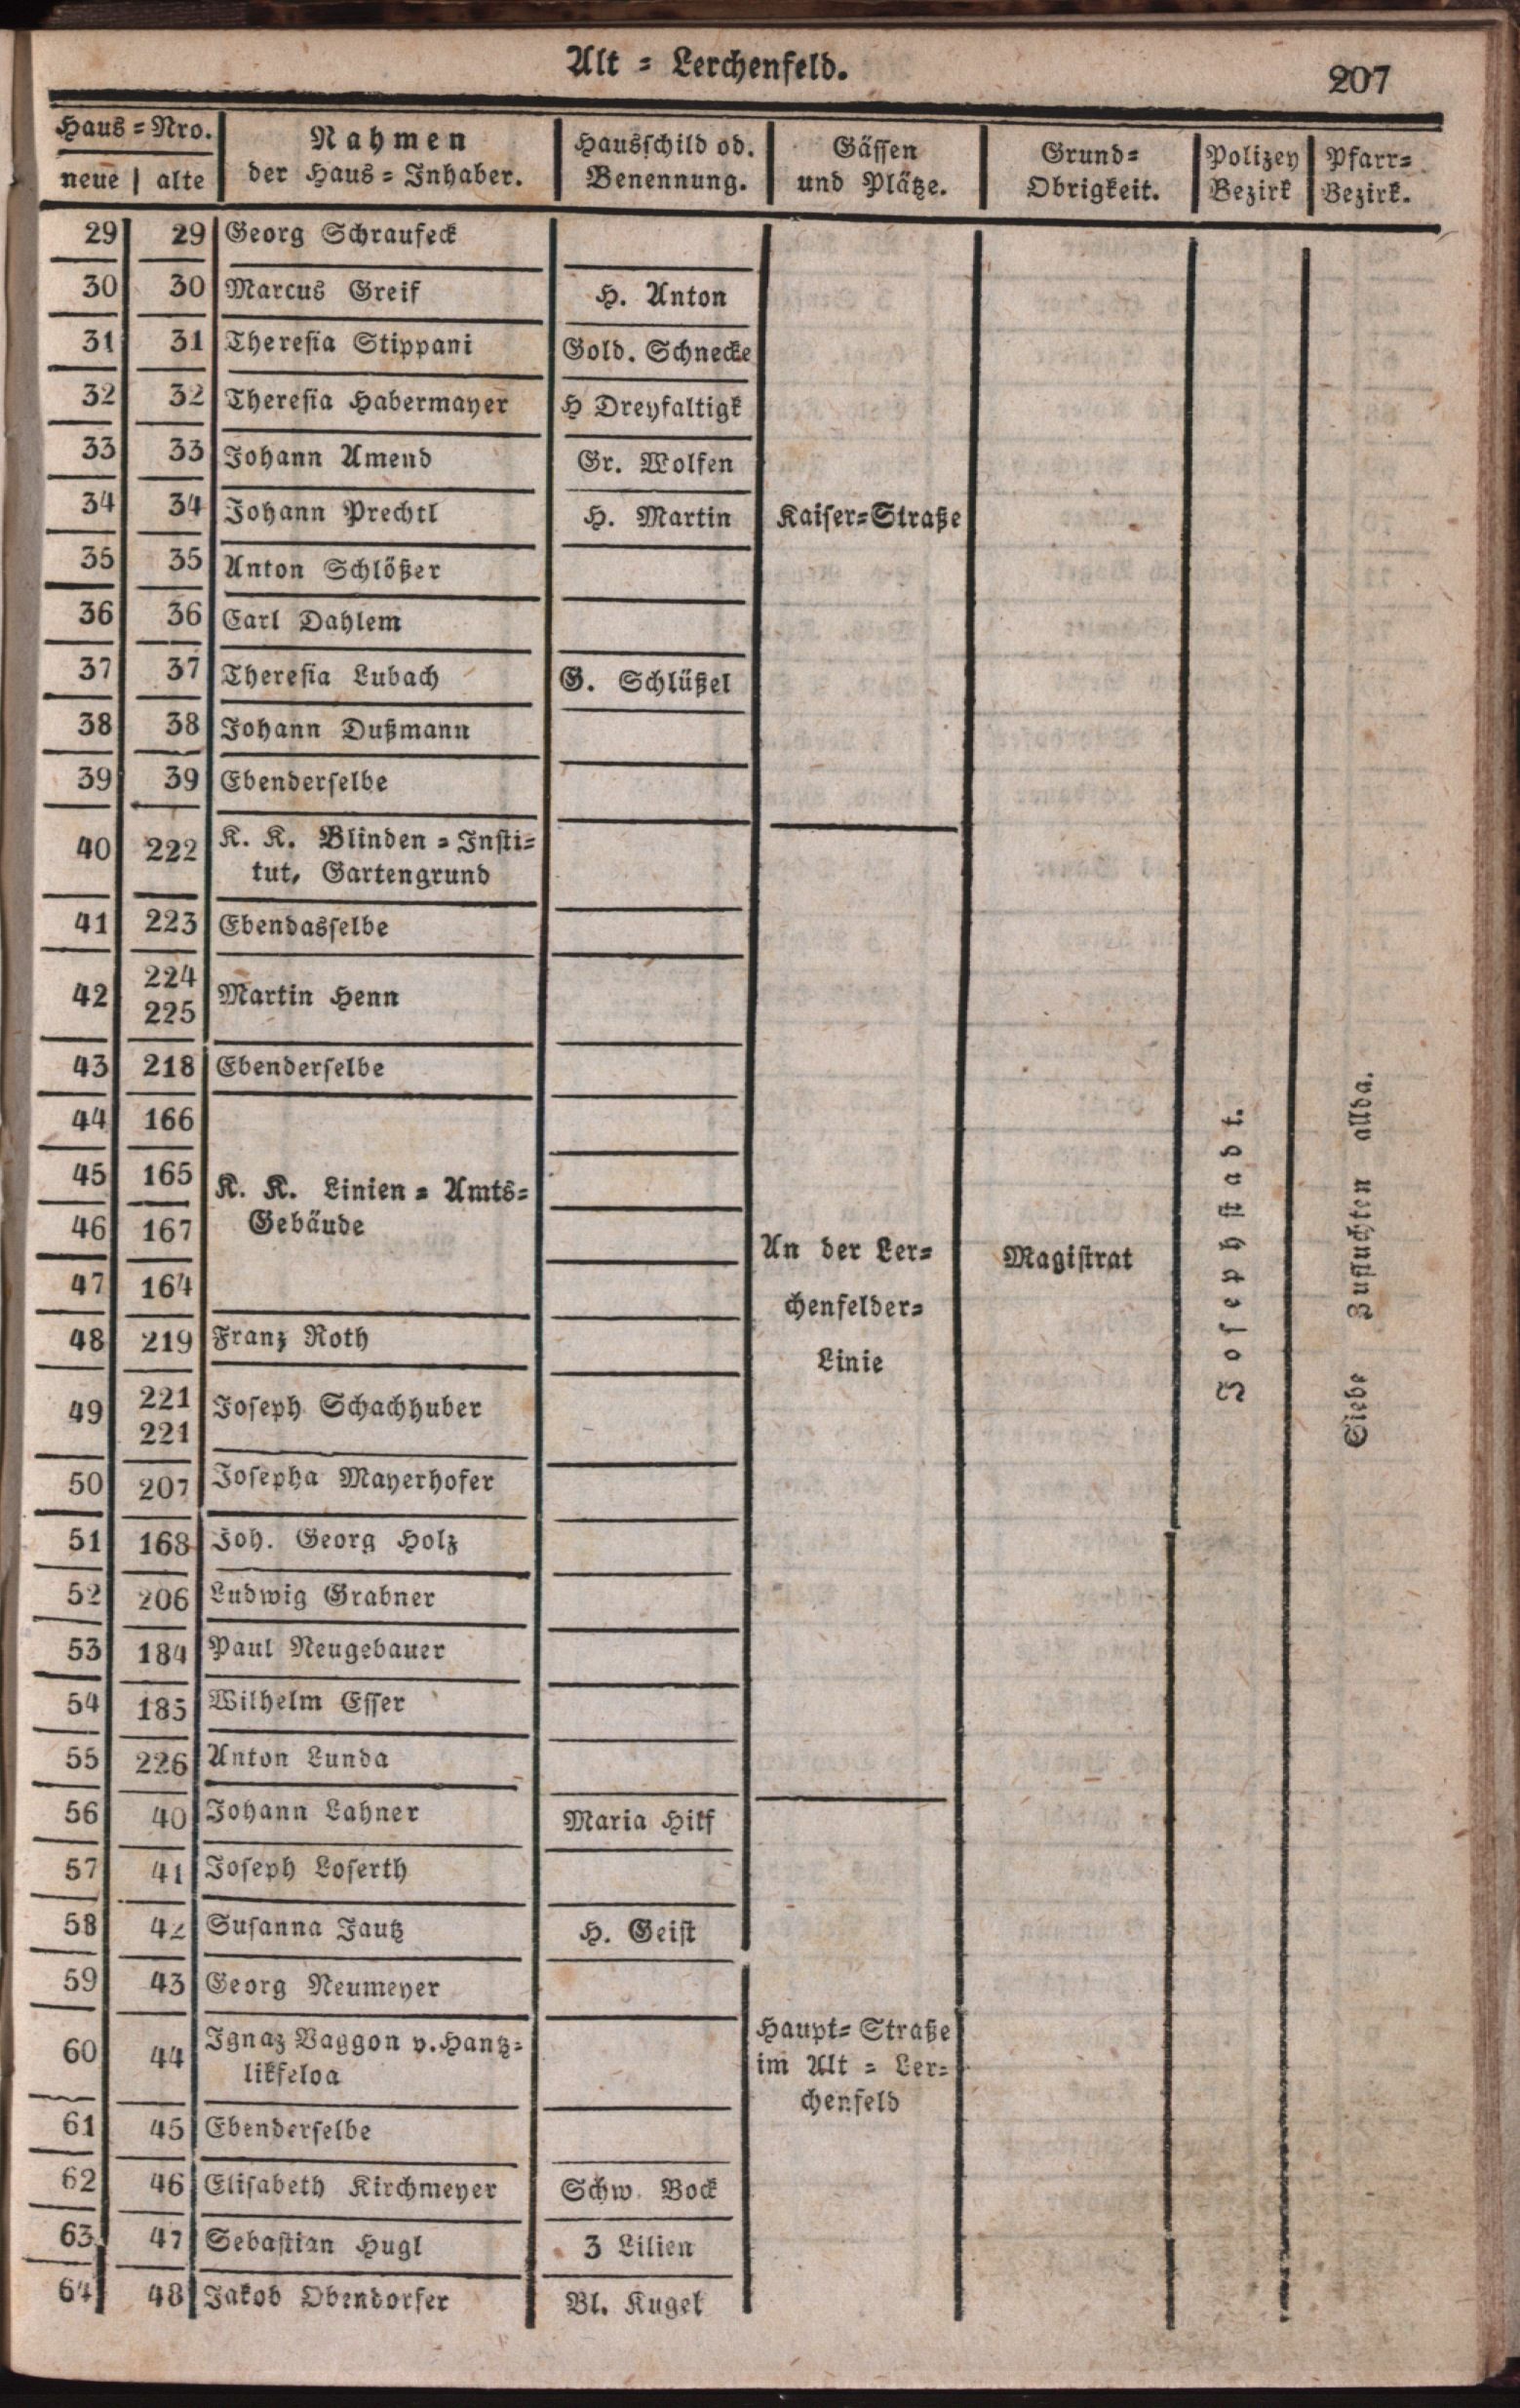 Alt = Lerchenfeld.
207
Haus = Nro.
neue | alte
Nahmen
der Haus = Inhaber.
Hausschild od.
Benennung.
Gässen
und Plätze.
Grund=
Obrigkeit.
Polizey
Bezirk
Pfarr=
Bezirk.
29 29 Georg Schraufeck
30 30 Marcus Greif H. Anton
31 31 Theresia Stippani Gold. Schnecke
32 32 Theresia Habermayer H Dreyfaltigk
33 33 Johann Amend Gr. Wolfen
34 34 Johann Prechtl H. Martin Kaiser=Straße
35 35 Anton Schlößer
36 36 Carl Dahlem
37 37 Theresia Lubach G. Schlüßel
38 38 Johann Dußmann
39 39 Ebenderselbe
40 222 K. K. Blinden = Insti=
tut, Gartengrund
41 223 Ebendasselbe
42 224
225 Martin Henn
43 218 Ebenderselbe
44 166
45 165 K. K. Linien = Amts=
46 167 Gebäude
47 164
An der Ler=
chenfelder=
Linie
Magistrat
Josephstadt.
Siebe Zufluchten allda.
48 219 Franz Roth
49 221
221 Joseph Schachhuber
50 207 Josepha Mayerhofer
51 168 Joh. Georg Holz
52 206 Ludwig Grabner
53 184 Paul Neugebauer
54 185 Wilhelm Esser
55 226 Anton Lunda
56 40 Johann Lahner Maria Hilf
57 41 Joseph Loserth
58 42 Susanna Jautz H. Geist
59 43 Georg Neumeyer
60 44 Ignaz Vaggon v. Hantz=
likfeloa
Haupt= Straße
im Alt = Ler=
chenfeld
61 45 Ebenderselbe
62 46 Elisabeth Kirchmeyer Schw. Bock
63 47 Sebastian Hugl 3 Lilien
64 48 Jakob Obendorfer Bl. Kugel